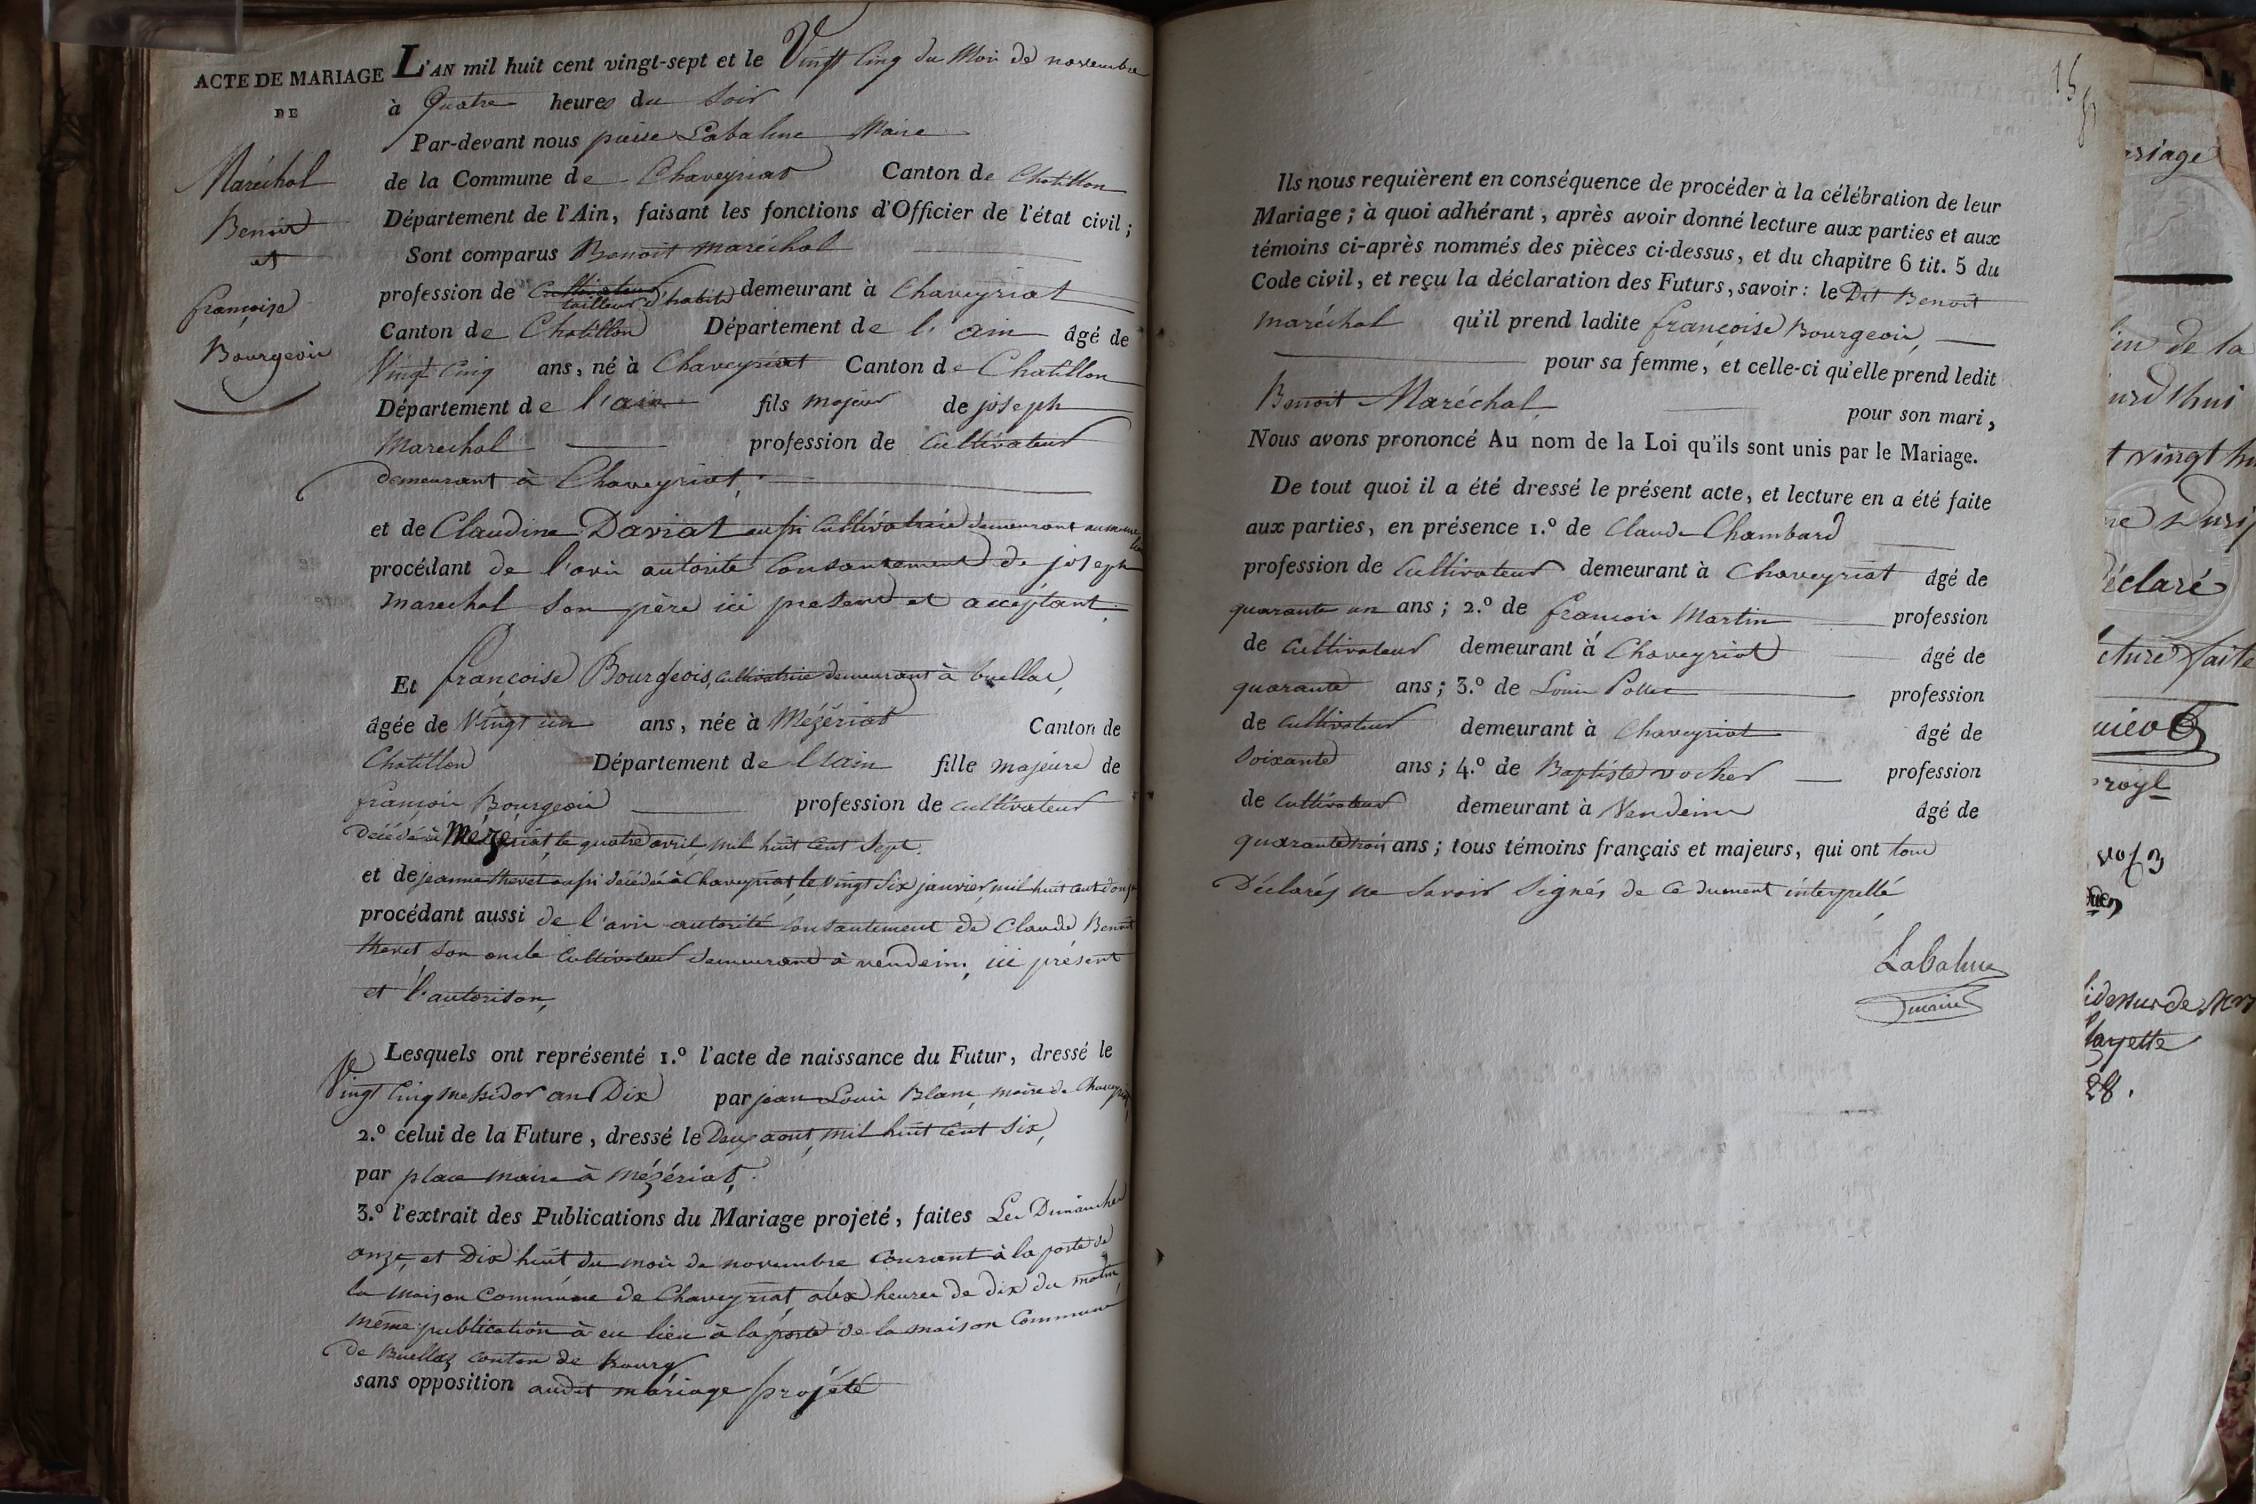 ACTE DE MARIAGE
DE
Maréchal
Benoit
et
françoise
Bourgeois
L'AN mil huit cent vingt-sept et le Vingt Cinq du Mois de novembre
à Quatre heures du Soir
Par-devant nous pierre Labalme Maire
de la Commune de Chaveyriat Canton de Chatillon
Département de l'Ain, faisant les fonctions d'Officier de l'état civil;
Sont comparus Benoit maréchal
profession de cultivateur demeurant à Chaveyriat
tailleur d'habits
Canton de Chatillon Département de l'ain âgé de
Vingt Cinq ans, né à Chaveyriat Canton de Chatillon
Département de l'ain fils majeur de joseph
Marechal profession de Cultivateur
demeurant à Chaveyriat,
et de Claudine Daviat aussi Cultivatrice demeurant au meme lieu
procédant de l'avis autorité Consentement de joseph
marechal son père ici present et acceptant.
Et françoise Bourgeois, Cultivatrice demeurant à buellas,
âgée de Vingt un ans, née à Mézériat Canton de
Chatillon Département de l'ain fille majeure de
françois Bourgeois profession de cultivateur
Décédé à Mézériat, le quatre avril, mil huit Cent Sept.
et de jeanne thevet aussi décédée à Chaveyriat, le vingt Six janvier, mil huit cent douze
procédant aussi de l'avis autorité Consantement de Claude Benoit
thevet son oncle Cultivateur demeurant à vendeins, ici présent
et l'autorisan,
Lesquels ont représenté 1.º l'acte de naissance du Futur, dressé le
Vingt Cinq messidor an Dix par jean Louis Blanc, maire de Chaveyriat,
2.º celui de la Future, dressé le Deux aout, mil huit Cent Six,
par place maire à mézériat,
3.º l'extrait des Publications du Mariage projeté, faites Les Dimanches
onze, et Dix huit du mois de novembre courant à la porte de
la maison Commune de Chaveyriat, aux heures de dix du matin,
même publication à eu lieu à la porte de la maison Commune
de Buellas, canton de Bourg
sans opposition audit mariage projété
15
Ils nous requièrent en conséquence de procéder à la célébration de leur
Mariage; à quoi adhérant, après avoir donné lecture aux parties et aux
témoins ci-après nommés des pièces ci-dessus, et du chapitre 6 tit. 5 du
Code civil, et reçu la déclaration des Futurs, savoir: le Dit Benoit
maréchal qu'il prend ladite françoise Bourgeois,
pour sa femme, et celle-ci qu'elle prend ledit
Benoit Maréchal, pour son mari,
Nous avons prononcé Au nom de la Loi qu'ils sont unis par le Mariage.
De tout quoi il a été dressé le présent acte, et lecture en a été faite
aux parties, en présence 1.º de Claude Chambard
profession de Cultivateur demeurant à Chaveyriat âgé de
quarante un ans; 2.º de françois Martin profession
de Cultivateur demeurant à Chaveyriat âgé de
quarante ans; 3.º de Louis Pollet profession
de Cultivateur demeurant à Chaveyriat âgé de
Soixante ans; 4.º de Baptiste vocher profession
de Cultivateur demeurant à Vendeins âgé de
quarante trois ans; tous témoins français et majeurs, qui ont tous
Déclarés ne Savoir Signés de Ce dument interpellé,
Labalme
maire
ariage
in de la
urd'hui
t vingt hu
déclaré
cture faite
28.